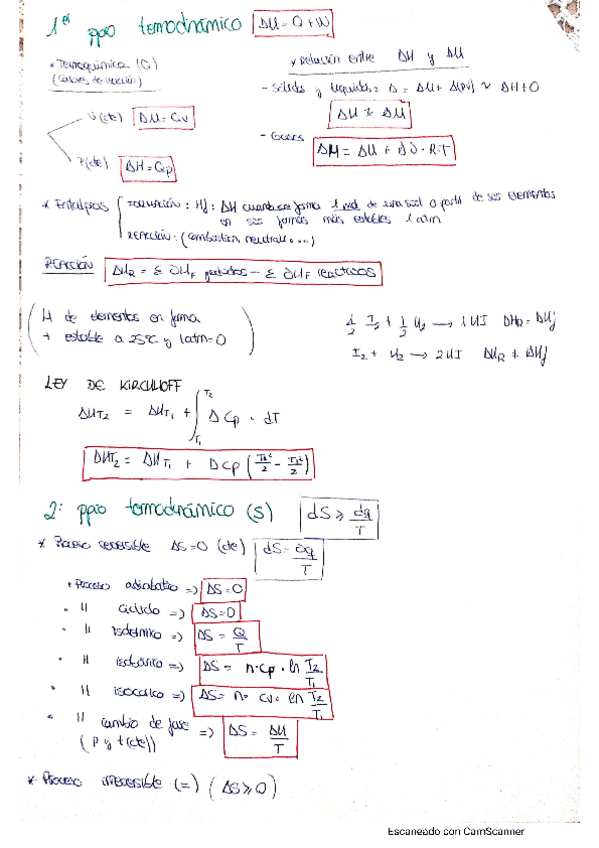 1er ppio termodnámico ΔU = Q + W
* Termoquímica (Q)
(calores de reacción)
V(cte) ΔU = Qv
P(cte) ΔH = Qp
* Relación entre ΔH y ΔU
- Sólidos y líquidos: Δ = ΔU + Δ(PV) ≈ ΔH + 0
ΔH ≈ ΔU
- Gases
ΔH = ΔU + ΔV · R·T
* Entalpias
FORMACIÓN: Hf: ΔH cuando se forma 1 mol de una sust. a partir de sus elementos
en sus formas más estables 1 atm
REACCIÓN: (combustión, neutrali. ...)
REACCIÓN ΔHR = Σ ΔHF productos - Σ ΔHF reactivos
(H de elementos en forma
+ estable a 25ºC y 1atm = 0)
1/2 I2 + 1/2 H2 → 1 HI ΔHR = ΔHf
I2 + H2 → 2 HI ΔHR ≠ ΔHf
LEY DE KIRCHHOFF
ΔHT2 = ΔHT1 + ∫T1T2 ΔCp · dT
ΔHT2 = ΔHT1 + DCp (T2²/2 - T1²/2)
2º ppio termodnámico (S) dS ≥ dq/T
* Proceso reversible ΔS = 0 (cte) dS = ∂q/T
• Proceso adiabático => ΔS = 0
• " cíclido => ΔS = 0
• " isotérmico => ΔS = Q/T
• " isobárico => ΔS = n·Cp · ln T2/T1
• " isocórico => ΔS = n· Cv· ln T2/T1
• " cambio de fase => ΔS = ΔH/T
(P y t (cte))
* Proceso irreversible (=) (ΔS ≥ 0)
Escaneado con CamScanner